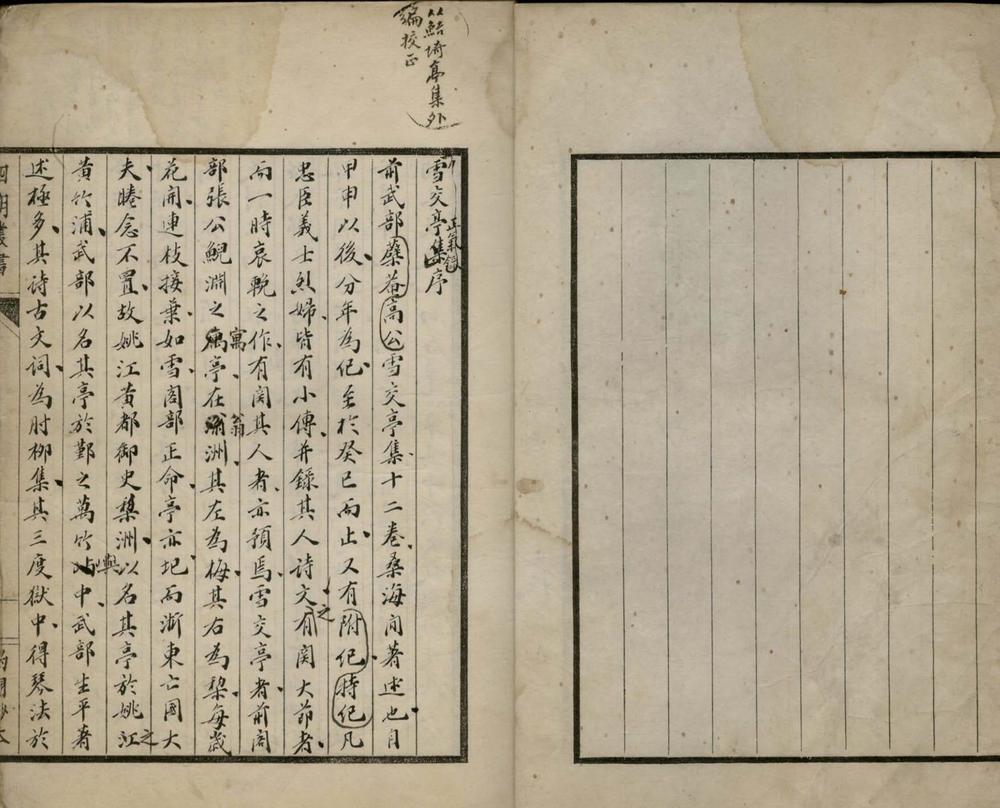 以鮚埼亭集外
編校正
雪交亭集序
正氣錄
前武部蘗菴高公雪交亭集十二卷桑海間著述也自
甲申以後分年為紀至於癸巳而止又有附紀特紀凡
忠臣義士烈婦皆有小傳并錄其人詩文之有関大節者
而一時哀輓之作有関其人者亦預焉雪交亭者前閣
部張公鯢淵之寓亭在翁洲其左為梅其右為棃每歲
花開連枝接葉如雪閣部正命亭亦圮而浙東亡國大
夫睠念不置故姚江黄都御史棃洲以名其亭於姚江之
黄竹浦武部以名其亭於鄞之萬竹嶼中武部生平著
述極多其詩古文詞為肘柳集其三度獄中得琴法於
四明叢書
約園抄本